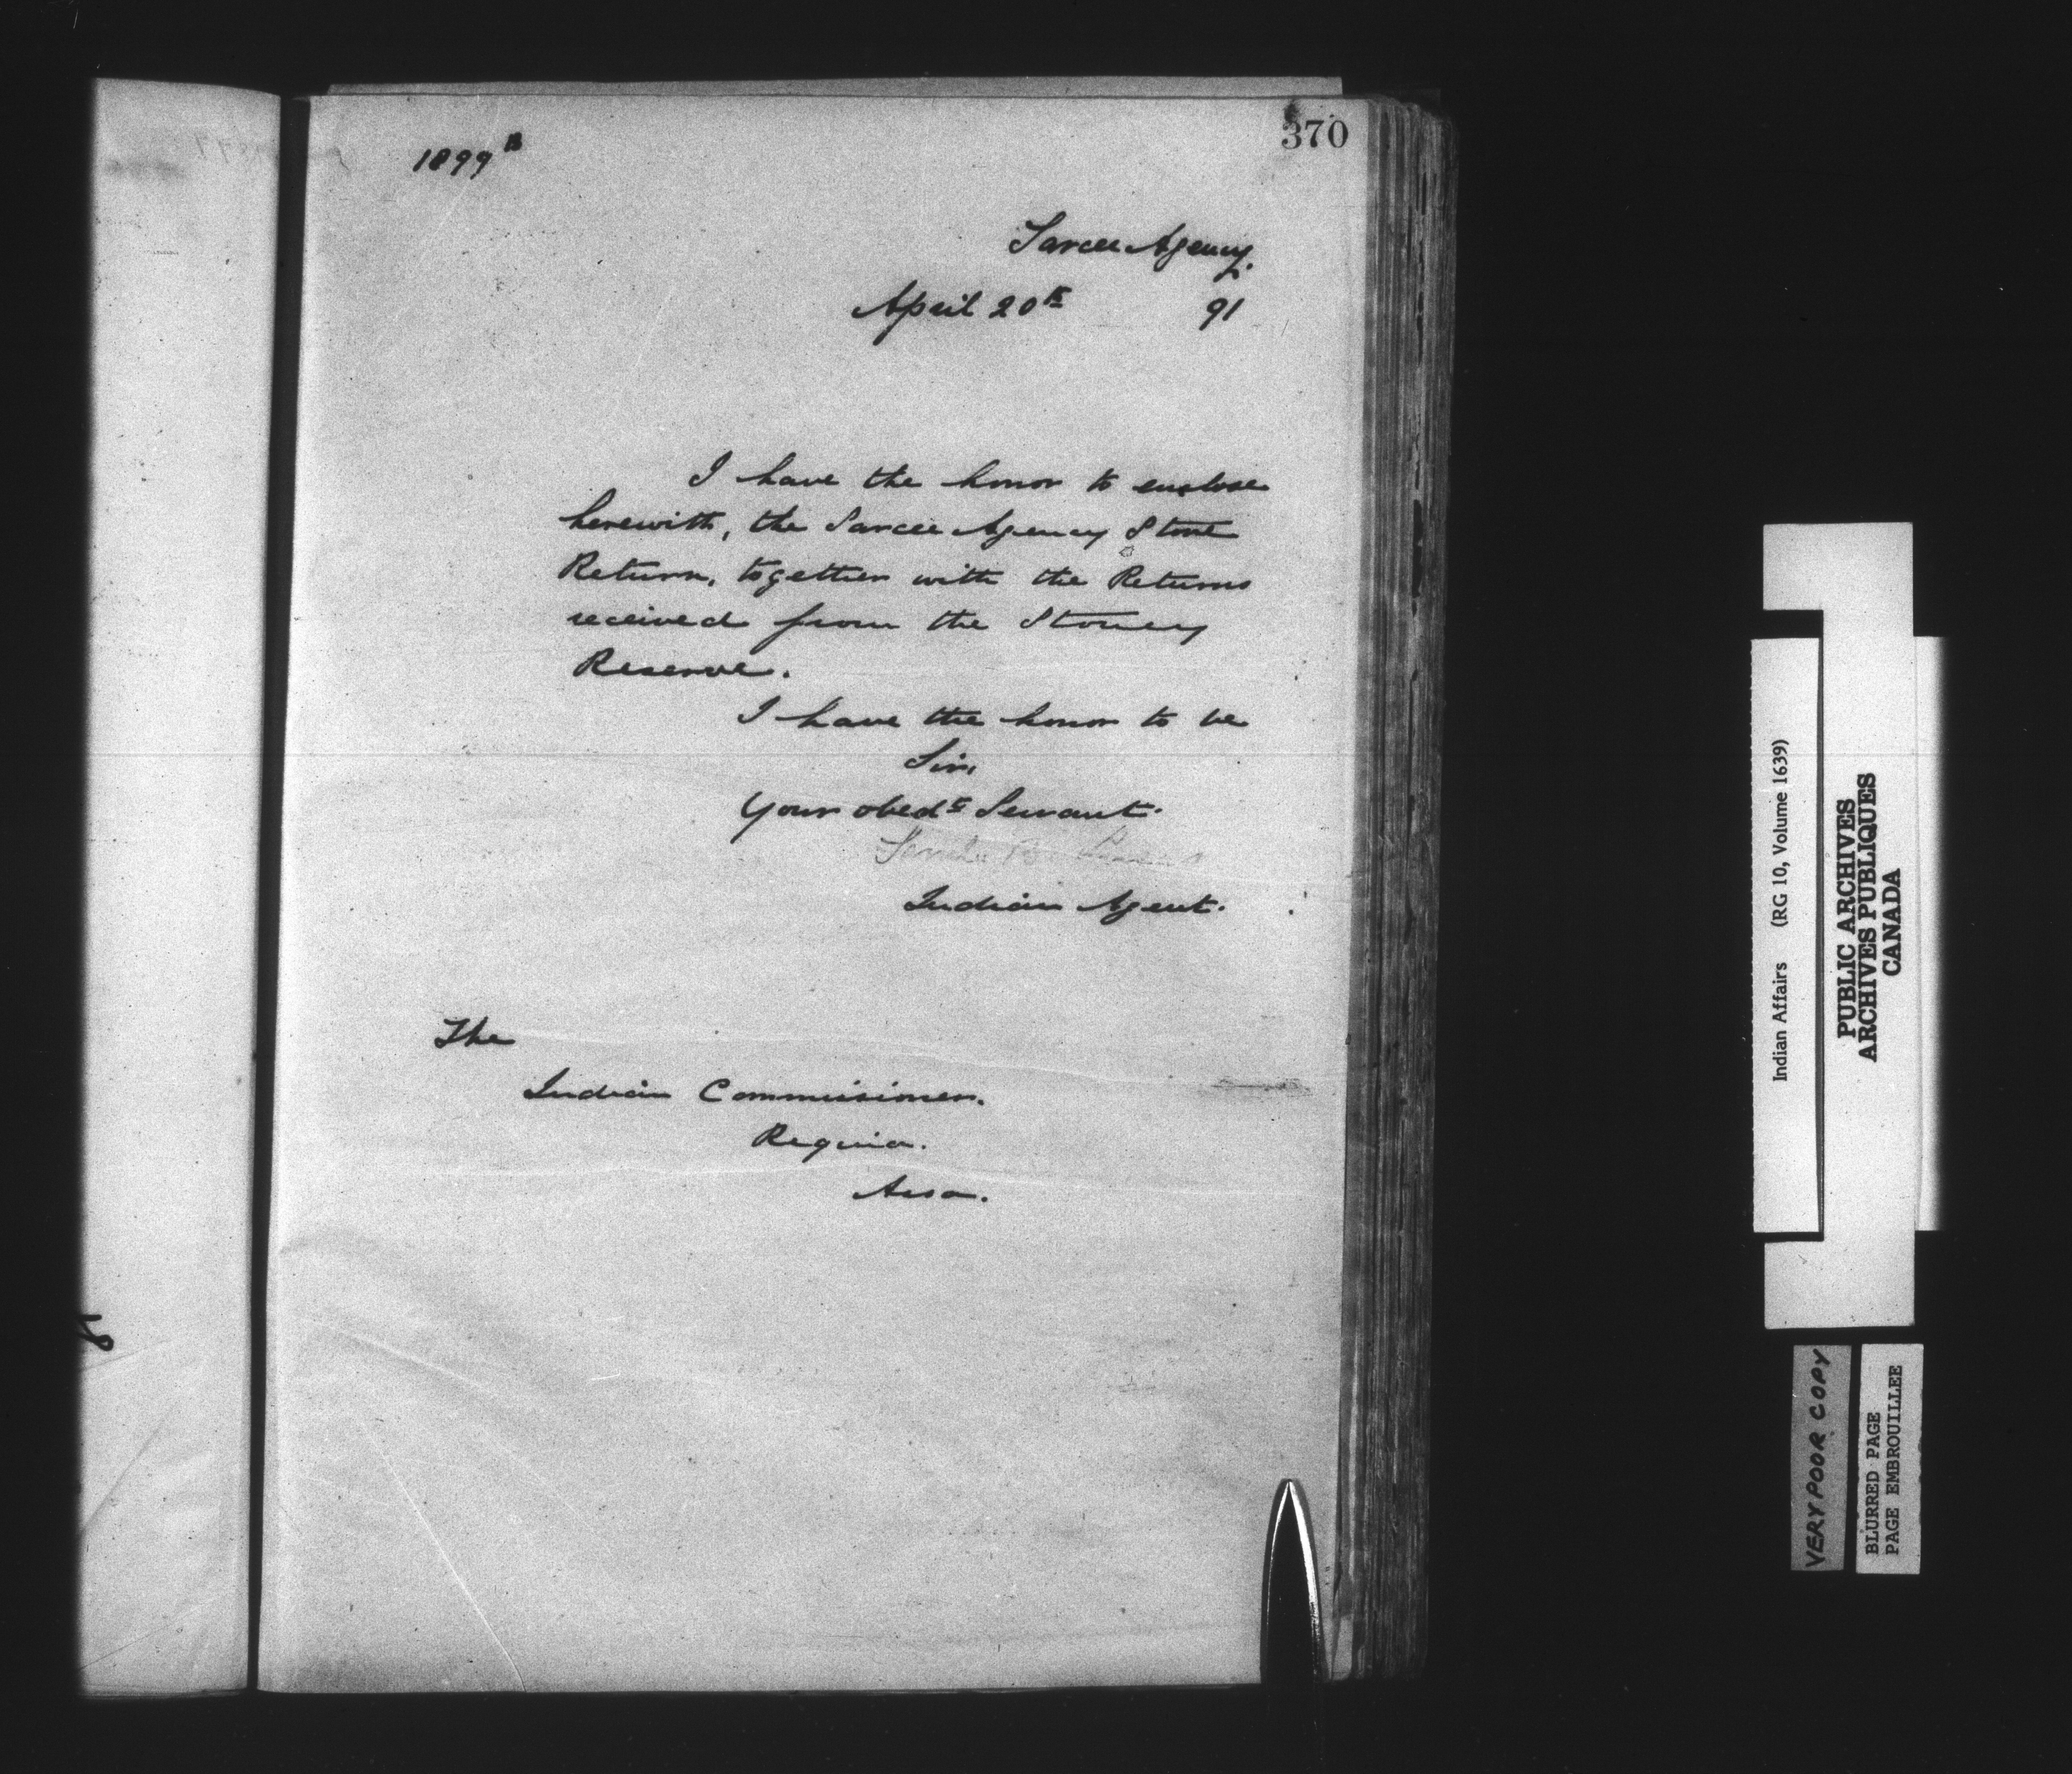 370
1899 B
Sarcee Agency.
April 20th 91
I have the honor to enclose
herewith, the Sarcee Agency Store
Return, together with the Returns
received from the Stoney
Reserve.
I have the honor to be
Sir,
Your obedt Servant.
Indian Agent.
The
Indian Commissioner.
Regina.
Assa.
Indian Affairs (RG 10, Volume 1639)
PUBLIC ARCHIVES
ARCHIVES PUBLIQUES
CANADA
VERY POOR COPY
BLURRED PAGE
PAGE EMBROUILLEE